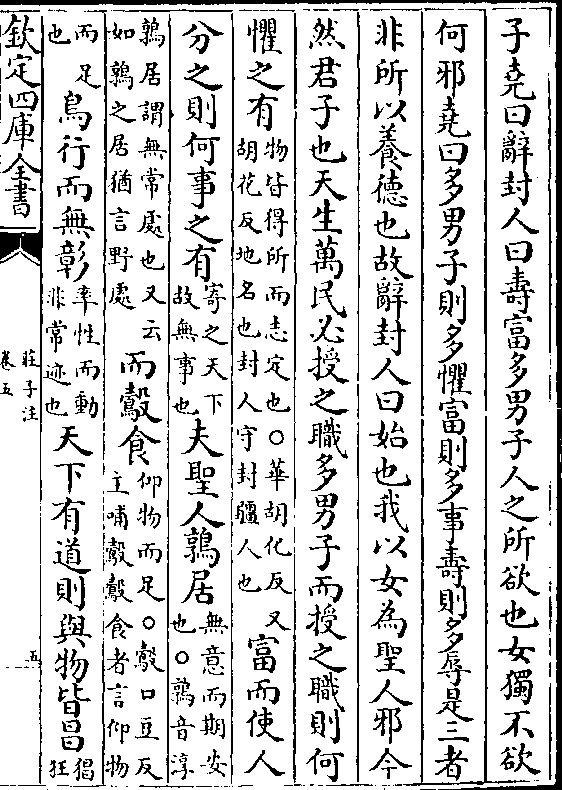 子堯曰辭封人曰壽富多男子人之所欲也女獨不欲
何邪堯曰多男子則多懼富則多事壽則多辱是三者
非所以養德也故辭封人曰始也我以女為聖人邪今
然君子也天生萬民必授之職多男子而授之職則何
懼之有物皆得所而志定也○華胡化反又胡花反地名也封人守封疆人也富而使人
分之則何事之有寄之天下故無事也夫聖人鶉居無意而期安也○鶉音淳
鶉居謂無常處也又云如鶉之居猶言野處而鷇食仰物而足○鷇口豆反主哺鷇鷇食者言仰物
而足也鳥行而無彰率性而動非常迹也天下有道則與物皆昌猖狂
欽定四庫全書
莊子注
卷五
五